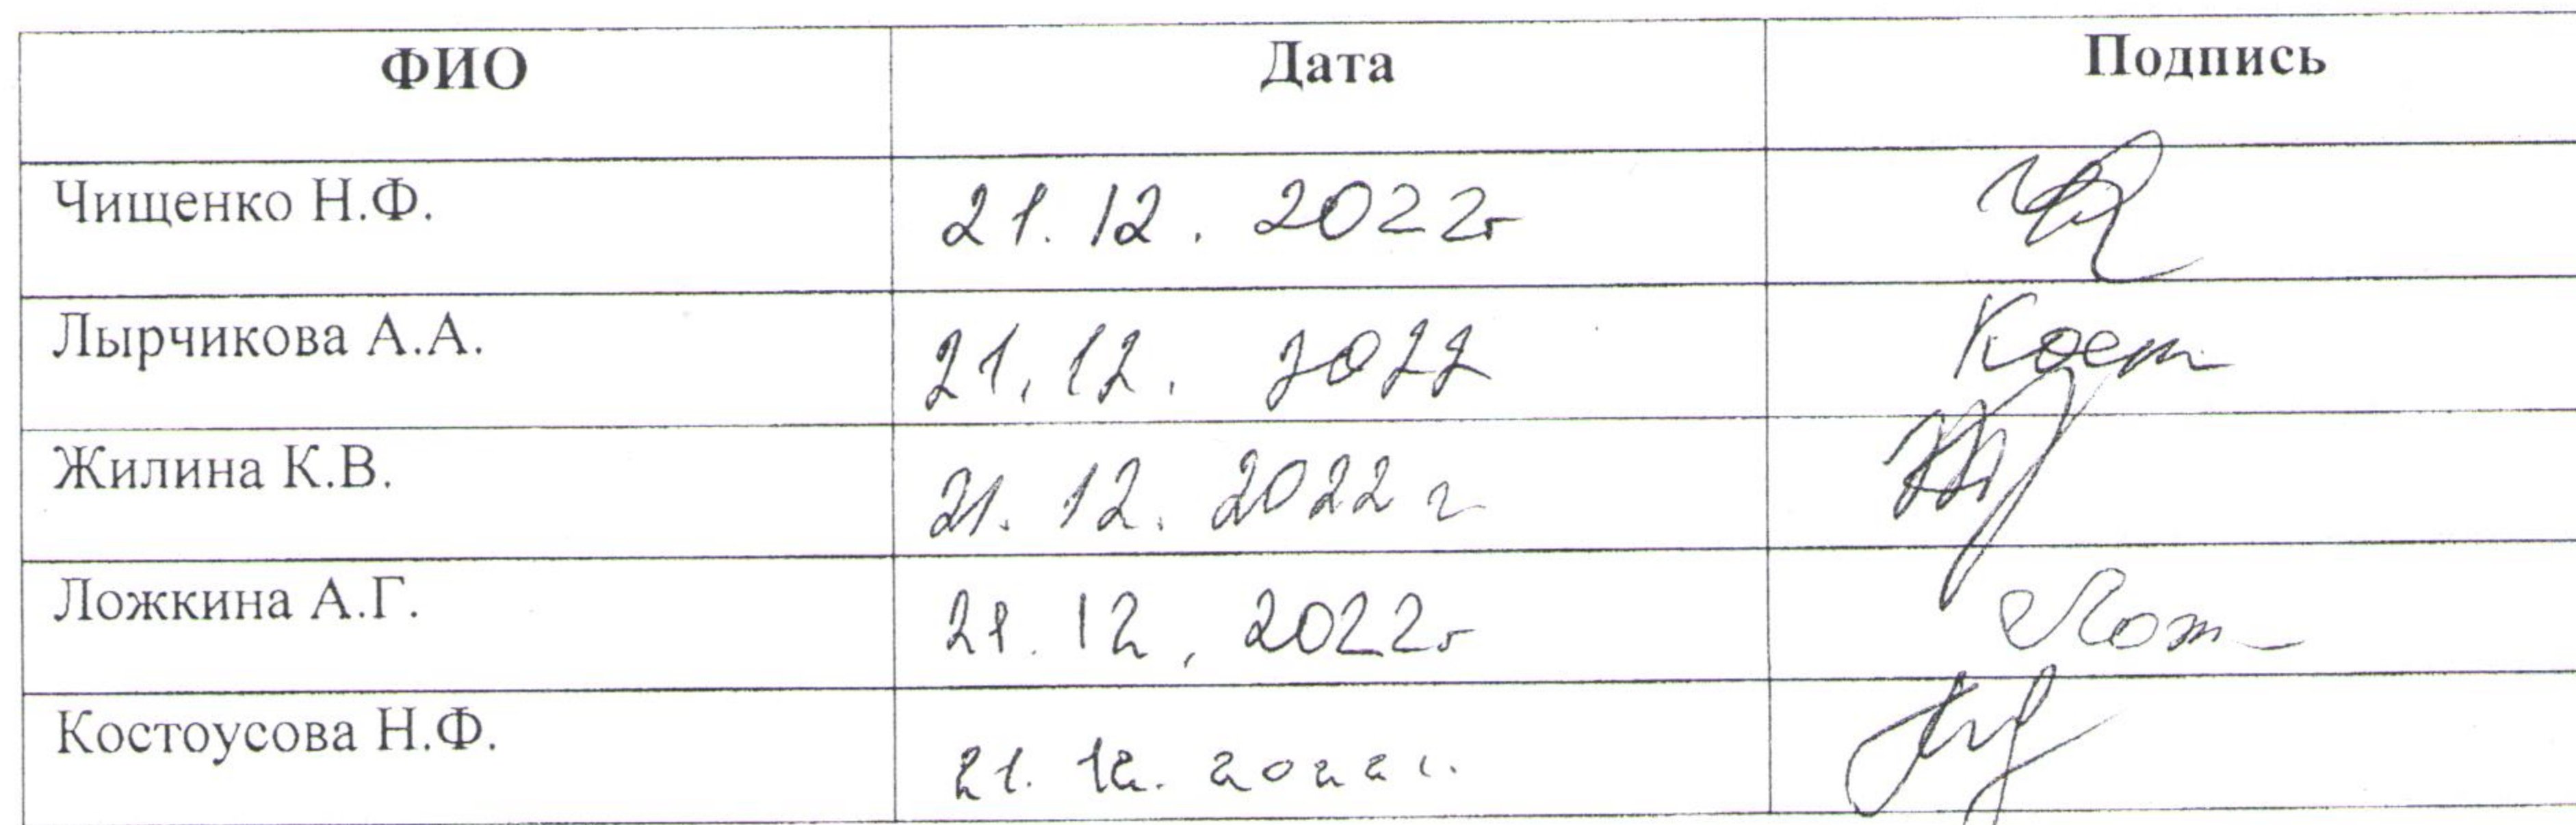 ФИО Дата Подпись
Чищенко Н.Ф. 21.12.2022г
Лырчикова А.А. 21.12.2022 Кост
Жилина К.В. 21.12.2022 г
Ложкина А.Г. 21.12.2022г Лож
Костоусова Н.Ф. 21.12.2022г.